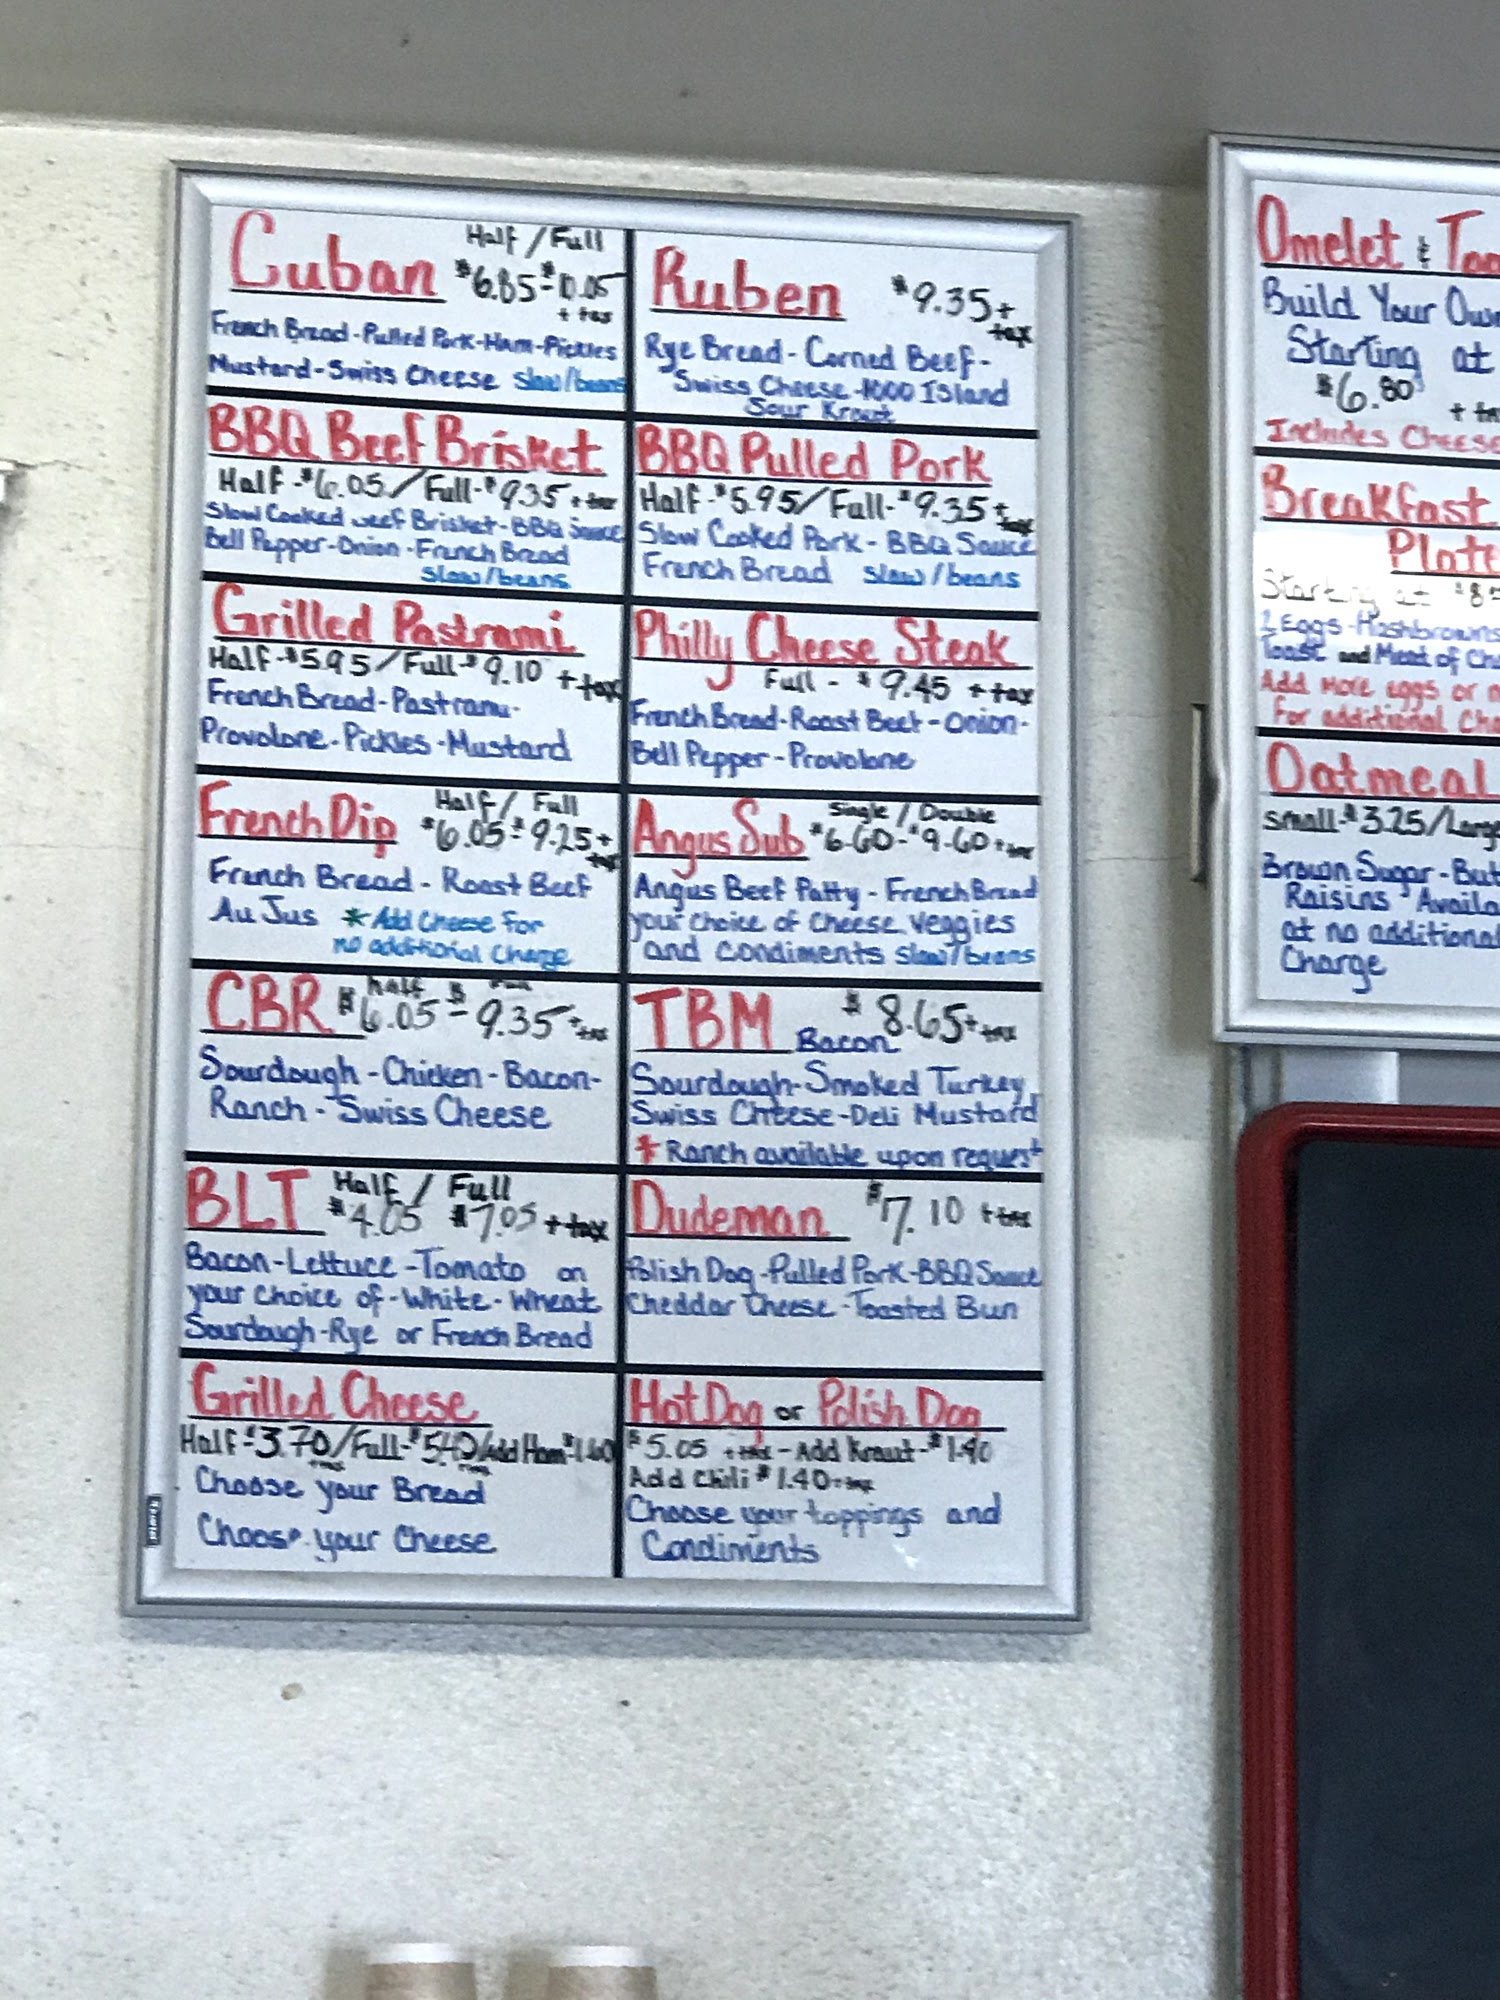 Cuban Half / Full
$6.85-$10.05
+ tax
French Bread-Pulled Pork-Ham-Pickles
Mustard-Swiss Cheese slaw/beans
Ruben $9.35+
tax
Rye Bread-Corned Beef-
Swiss Cheese-1000 Island
Sour Kraut
BBQ Beef Brisket
Half-$6.05/Full-$9.35 + tax
Slow Cooked Beef Brisket-BBQ Sauce
Bell Pepper-Onion-French Bread
slaw/beans
BBQ Pulled Pork
Half-$5.95/Full-$9.35+
tax
Slow Cooked Pork-BBQ Sauce
French Bread slaw/beans
Grilled Pastrami
Half-$5.95/Full-$9.10 + tax
French Bread-Pastrami-
Provolone-Pickles-Mustard
Philly Cheese Steak
Full - $9.45 + tax
French Bread-Roast Beef-Onion-
Bell Pepper-Provolone
French Dip Half / Full
$6.05-$9.25+
tax
French Bread-Roast Beef
Au Jus *Add Cheese For
no additional Charge
Angus Sub Single / Double
$6.60-$9.60+tax
Angus Beef Patty-French Bread
your choice of cheese, veggies
and condiments slaw/beans
CBR Half Full
$6.05-$9.35+tax
Sourdough-Chicken-Bacon-
Ranch-Swiss Cheese
TBM $8.65+tax
Bacon
Sourdough-Smoked Turkey
Swiss Cheese-Deli Mustard
* Ranch available upon request
BLT Half / Full
$4.05 $7.05 + tax
Bacon-Lettuce-Tomato on
your choice of-White-Wheat
Sourdough-Rye or French Bread
Dudeman $7.10 + tax
Polish Dog-Pulled Pork-BBQ Sauce
Cheddar Cheese-Toasted Bun
Grilled Cheese
Half-$3.70/Full-$5.40/Add Ham $1.60
+tax +tax
Choose your Bread
Choose your Cheese
Hot Dog or Polish Dog
$5.05 +tax-Add Kraut-$1.40
Add Chili $1.40+tax
Choose your toppings and
Condiments
Omelet &
Build Your Own
Starting at
$6.80 + tax
Includes Cheese
Breakfast
Plate
Starting at $8
2 Eggs-Hashbrowns
Toast and Meat of
Add more eggs or
For additional
Oatmeal
small-$3.25/Large
Brown Sugar-
Raisins
at no additional
Charge